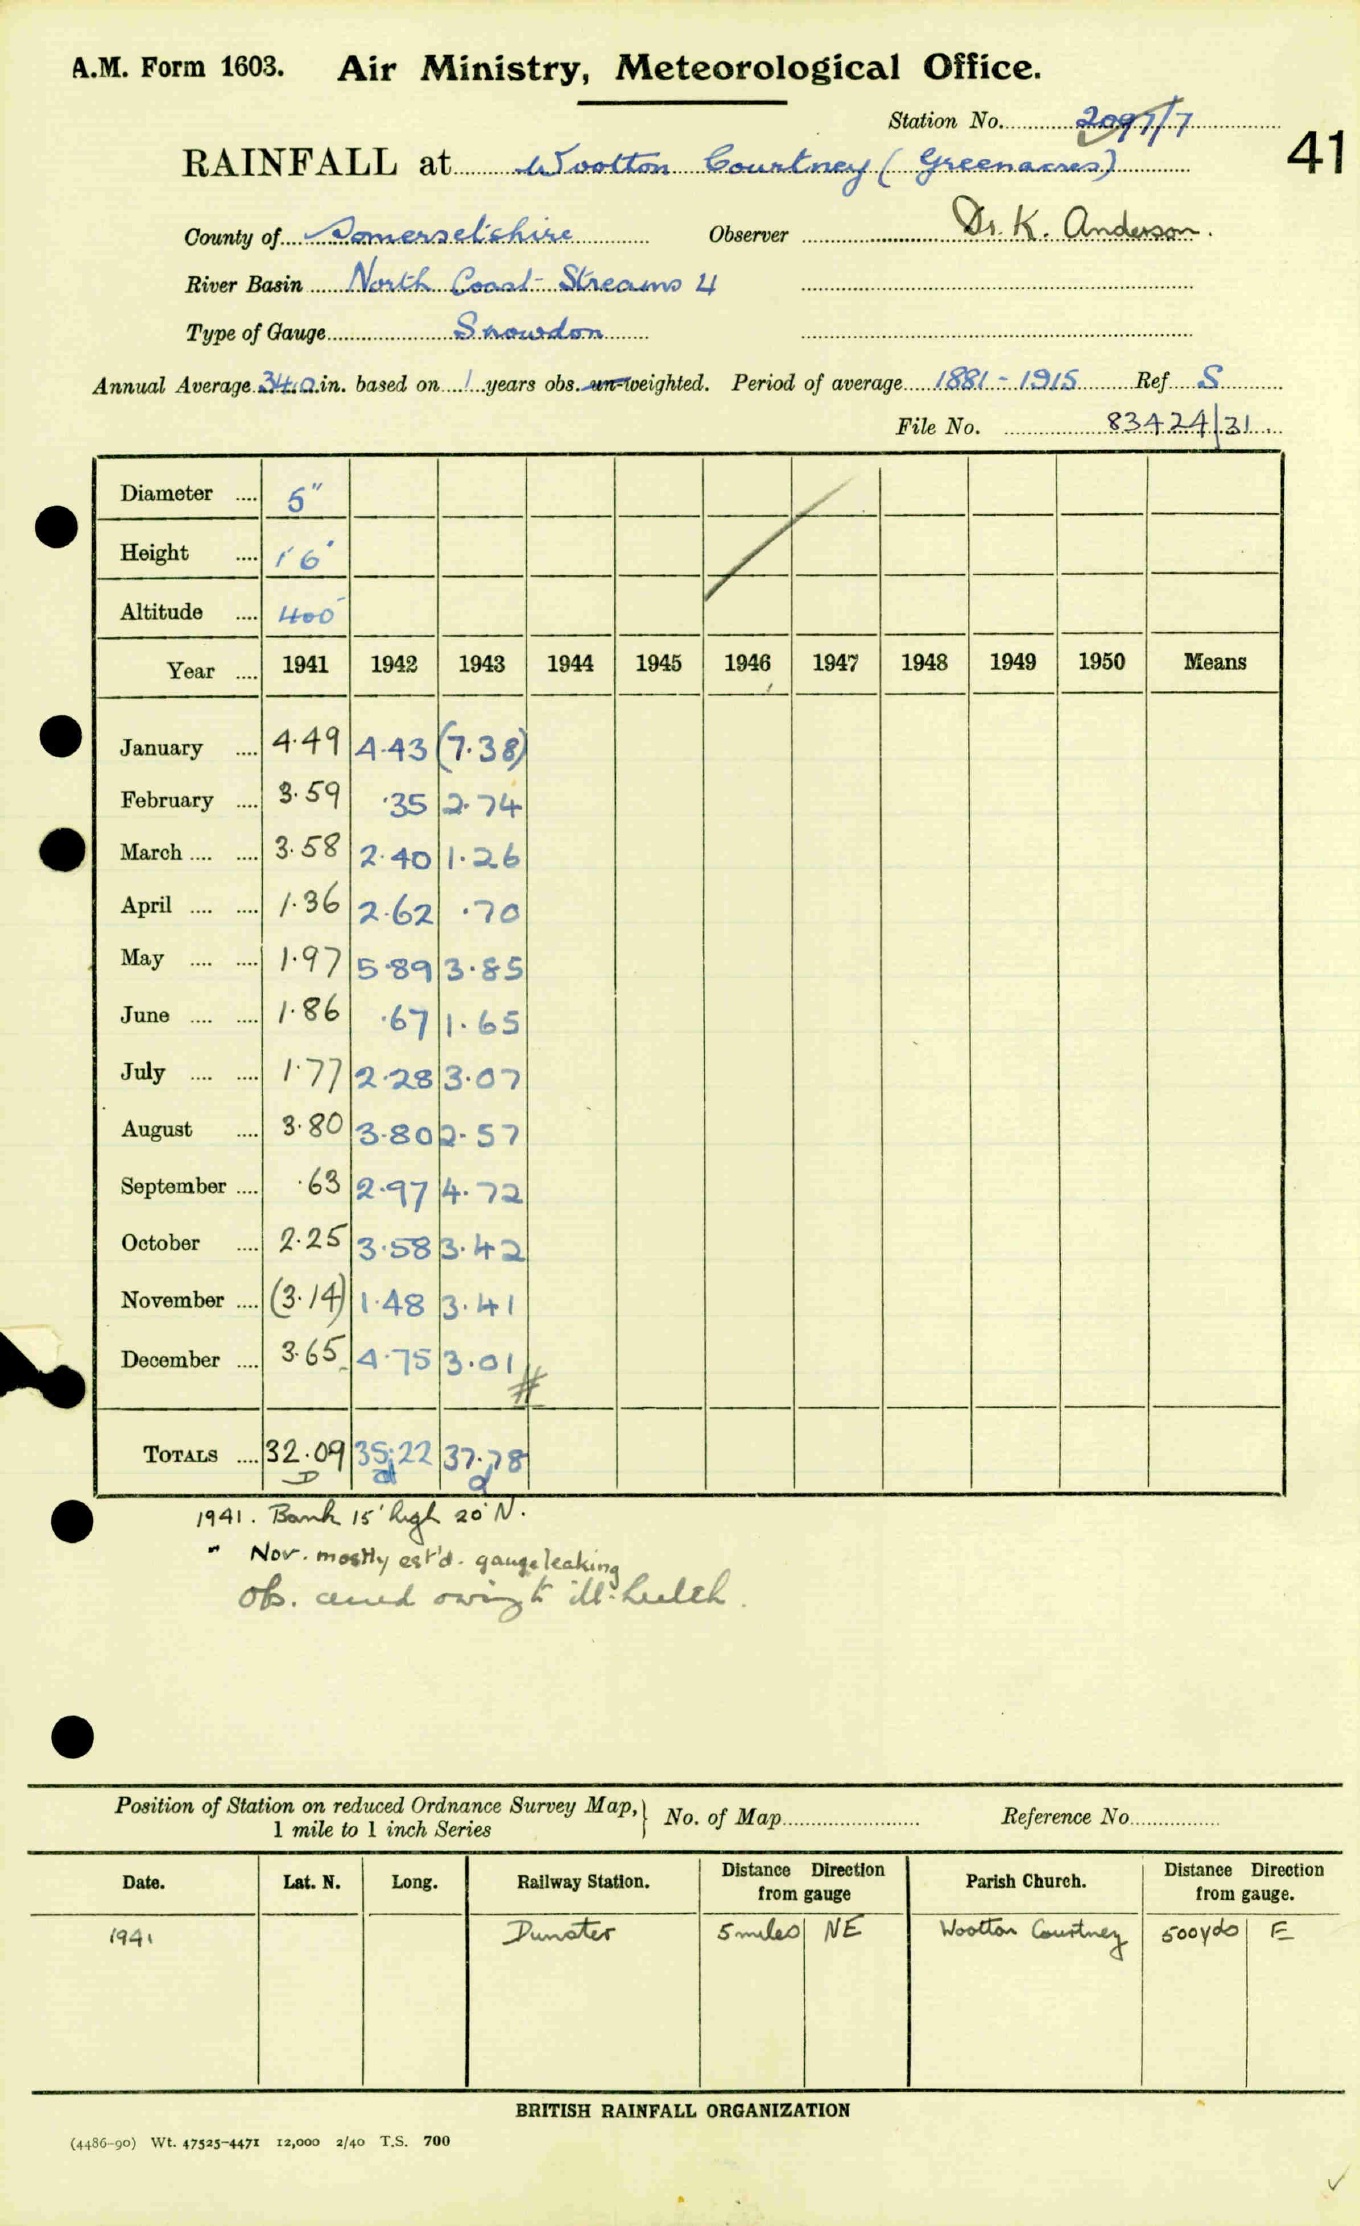 A.M. Form 1603. Air Ministry, Meteorological Office.
Station No. 2097/7
41
RAINFALL at Wootton Courtney (Greenacres)
County of Somersetshire Observer Dr. K. Anderson.
River Basin North Coast Streams 4
Type of Gauge Snowdon
Annual Average 34.0 in. based on 1 years obs. un-weighted. Period of average 1881-1915 Ref S
File No. 83424/31.
Diameter .... 5"
Height .... 1'6"
Altitude .... 400'
Year .... 1941 1942 1943 1944 1945 1946 1947 1948 1949 1950 Means
January .... 4.49 4.43 (7.38)
February .... 3.59 .35 2.74
March .... .... 3.58 2.40 1.26
April .... .... 1.36 2.62 .70
May .... .... 1.97 5.89 3.85
June .... .... 1.86 .67 1.65
July .... .... 1.77 2.28 3.07
August .... 3.80 3.80 2.57
September .... .63 2.97 4.72
October .... 2.25 3.58 3.42
November .... (3.14) 1.48 3.41
December .... 3.65 4.75 3.01
#
TOTALS .... 32.09 35.22 37.78
1941. Bank 15' high 20' N.
" Nov. mostly est'd. gauge leaking
Obs. ceased owing to ill-health.
Position of Station on reduced Ordnance Survey Map, } No. of Map Reference No.
1 mile to 1 inch Series
Date. Lat. N. Long. Railway Station. Distance Direction from gauge Parish Church. Distance Direction from gauge.
1941 Dunster 5 miles NE Wootton Courtney 500 yds E
BRITISH RAINFALL ORGANIZATION
(4486-90) Wt. 47525-4471 12,000 2/40 T.S. 700